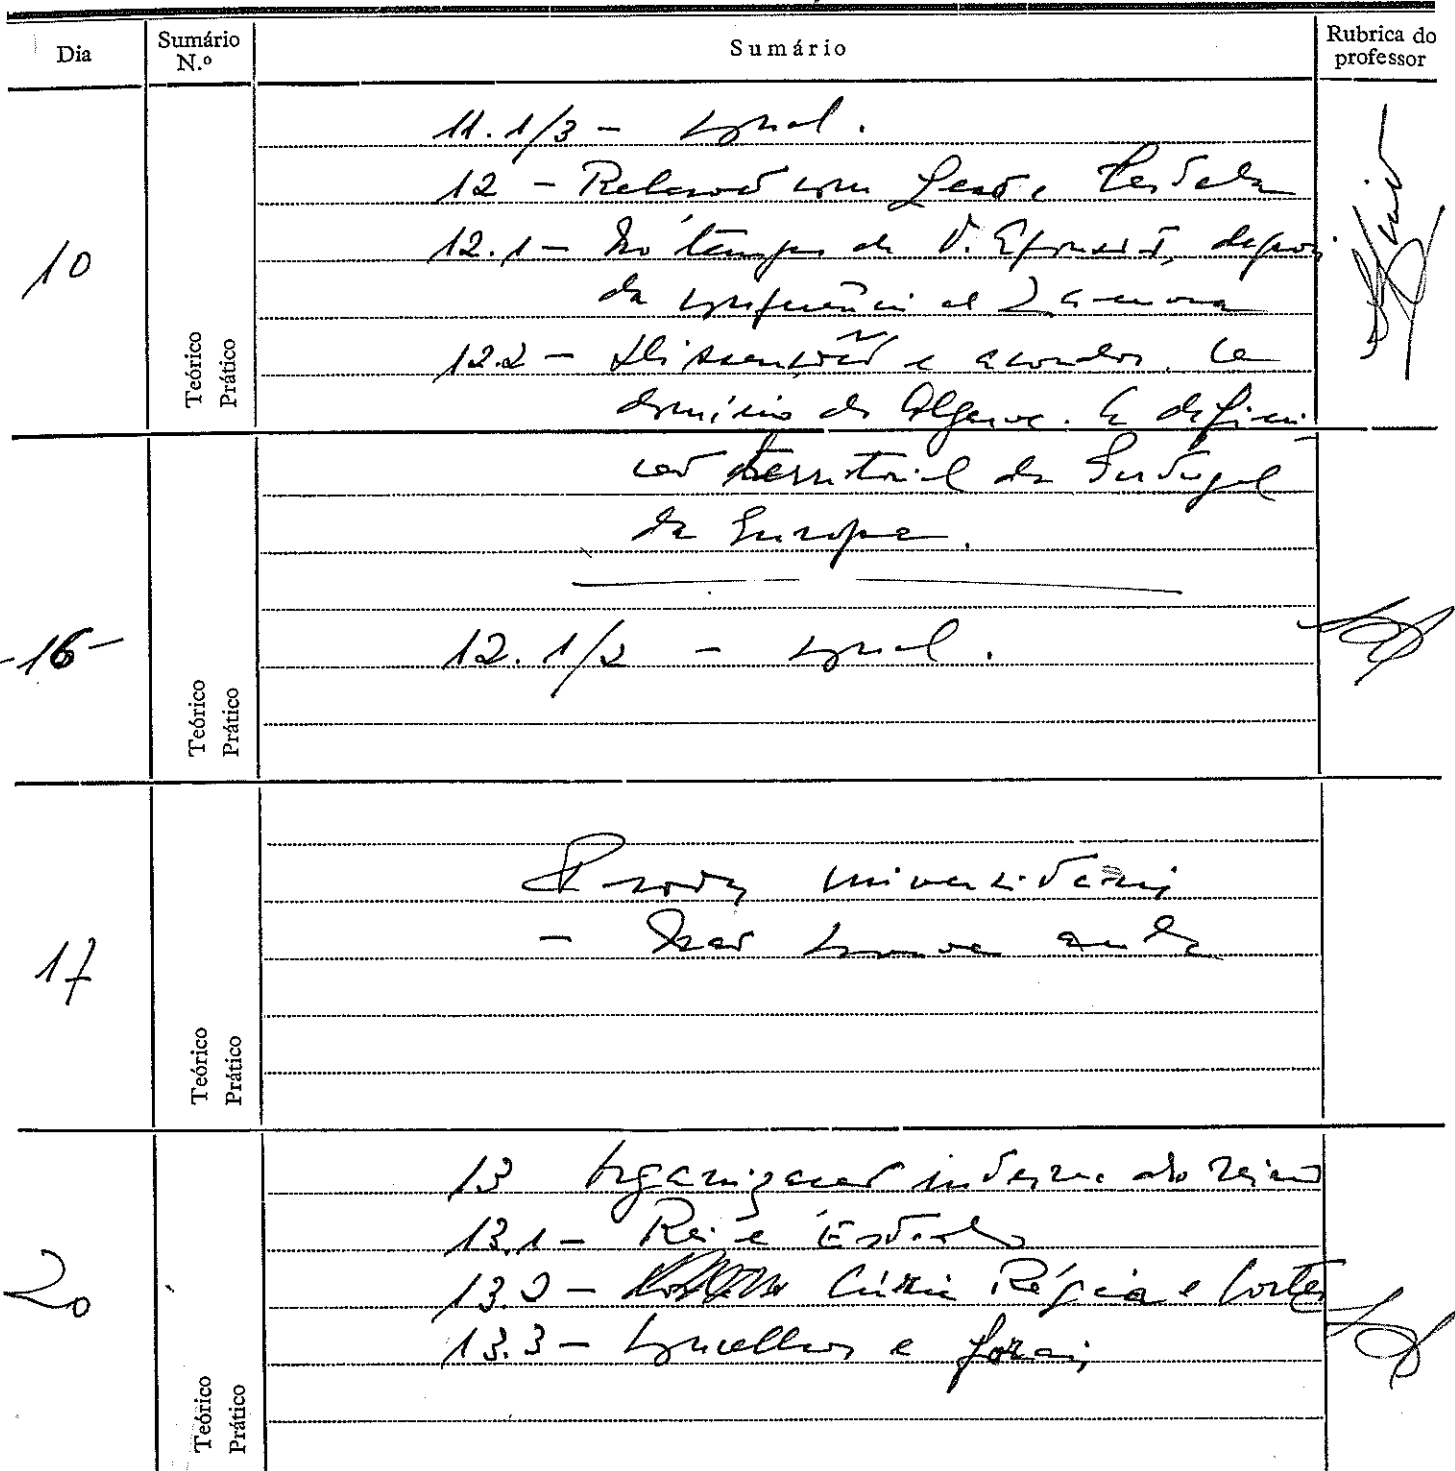 Dia
Sumário
N.º
Sumário
Rubrica do
professor
10
Teórico
Prático
11.1/3 -
12 - Relações com Leão e Castela
12.1 - No tempo de D. Afonso I, depois
da conferência de Zamora
12.2 - Dissenções e acordos. O
domínio do Algarve. A defini-
ção territorial de Portugal
da Europa.
-16-
Teórico
Prático
12.1/2 -
17
Teórico
Prático
Provas universitárias
- Não houve aula
20
Teórico
Prático
13 Organização interna do reino
13.1 - Rei e Estado
13.2 - Cúria Régia e Cortes
13.3 - Concelhos e forais